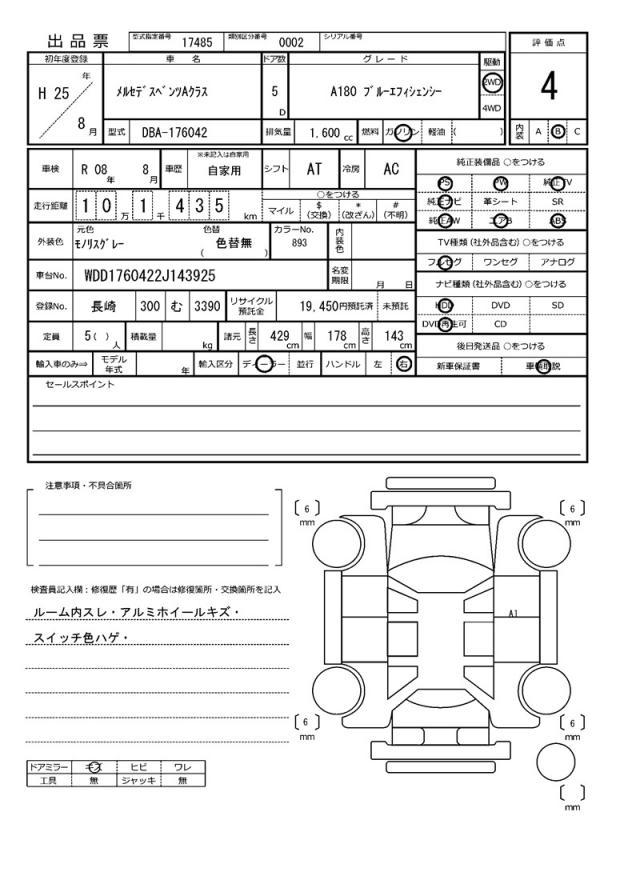 出品票 型式指定番号 17485 類別区分番号 0002 シリアル番号
評価点
4
内装 A B C
初年度登録 車名 ドア数 グレード 駆動
H 25 年 8 月 ﾒﾙｾﾃﾞｽﾍﾞﾝﾂAクラス 5 D A180 ﾌﾞﾙｰｴﾌｨｼｪﾝｼｰ 2WD 4WD
型式 DBA-176042 排気量 1.600 cc 燃料 ガソリン 軽油 ( )
車検 R 08 年 8 月 車歴 ※未記入は自家用 自家用 シフト AT 冷房 AC
走行距離 1 0 万 1 千 4 3 5 km ○をつける
マイル $ (交換) * (改ざん) # (不明)
外装色 元色 ﾓﾉﾘｽｸﾞﾚｰ 色替 ( 色替無 ) カラーNo. 893 内装色
車台No. WDD1760422J143925 名変期限 月 日
登録No. 長崎 300 む 3390 リサイクル預託金 19,450円預託済 未預託
定員 5( ) 人 積載量 kg 諸元 長さ 429 cm 幅 178 cm 高さ 143 cm
輸入車のみ⇒ モデル年式 年 輸入区分 ディーラー 並行 ハンドル 左 右
純正装備品 ○をつける
PS PW 純正TV
純正ナビ 革シート SR
純正AW エアB ABS
TV種類 (社外品含む) ○をつける
フルセグ ワンセグ アナログ
ナビ種類 (社外品含む) ○をつける
HDD DVD SD
DVD再生可 CD
後日発送品 ○をつける
新車保証書 車輌取説
セールスポイント
注意事項・不具合箇所
検査員記入欄：修復歴「有」の場合は修復箇所・交換箇所を記入
ルーム内スレ・アルミホイールキズ・
スイッチ色ハゲ・
ドアミラー キズ ヒビ ワレ
工具 無 ジャッキ 無
6 mm
6 mm
A1
6 mm
6 mm
mm